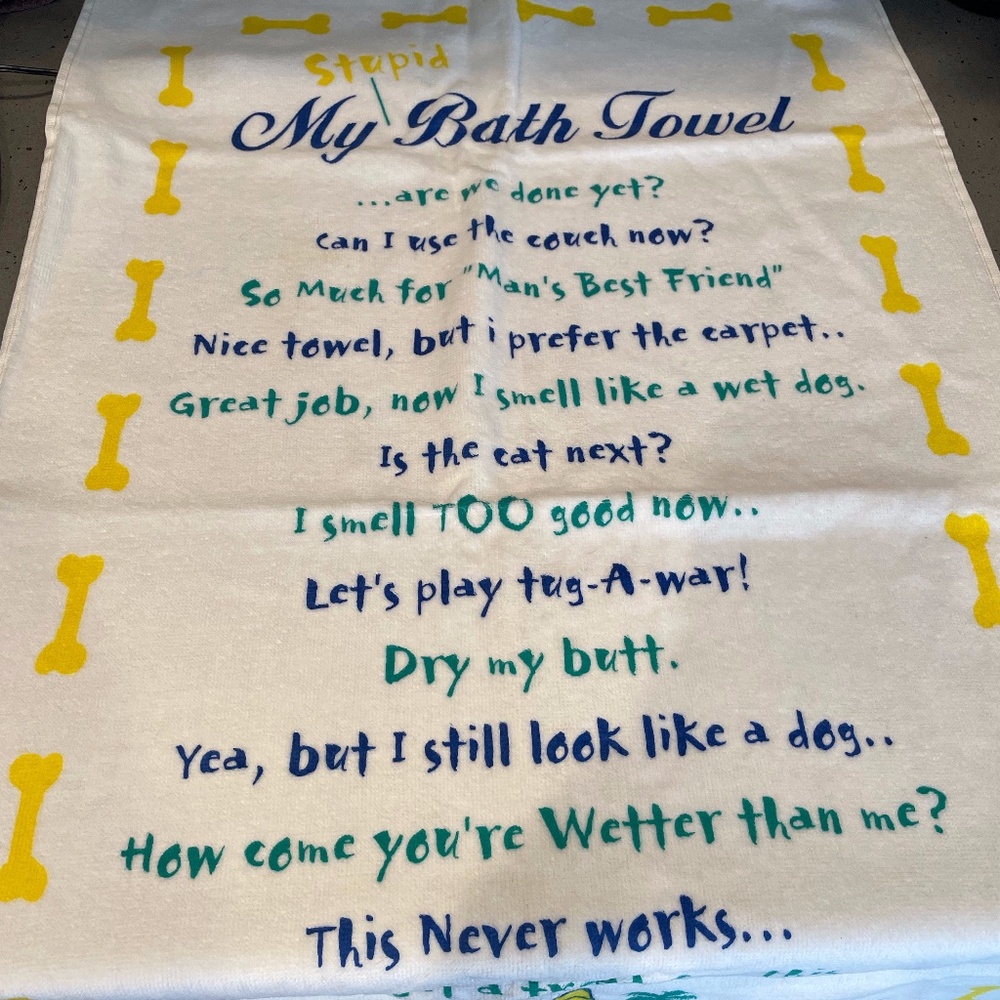 Stupid
My Bath Towel
...are we done yet?
Can I use the couch now?
So Much for "Man's Best Friend"
Nice towel, but i prefer the carpet..
Great job, now I smell like a wet dog.
Is the cat next?
I smell TOO good now..
Let's play tug-A-war!
Dry my butt.
Yea, but I still look like a dog..
How come you're Wetter than me?
This Never works...